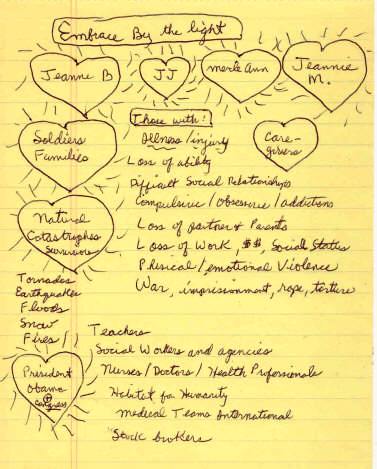 Embrace By the light
Jeanne B
JJ
Merle Ann
Jeannie
M.
Soldiers
Families
Those with:
Illness/injury
Loss of ability
Difficult Social Relationships
Compulsive/obsessive/addictions
Loss of partner & Parents
Loss of Work, $$, Social Status
Phisical/emotional Violence
War, imprisionment, rape, torture
Care-
givers
Natural
Catastrophes
Survivors
Tornados
Earthquakes
Floods
Snow
Fires
President
Obama
+
Congress
Teachers
Social Workers and agencies
Nurses/Doctors/Health Professionals
Habitat for Humanity
Medical Teams International
Stock brokers